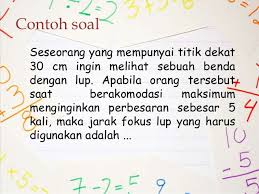 Contoh soal
Seseorang yang mempunyai titik dekat
30 cm ingin melihat sebuah benda
dengan lup. Apabila orang tersebut
saat berakomodasi maksimum
menginginkan perbesaran sebesar 5
kali, maka jarak fokus lup yang harus
digunakan adalah ...